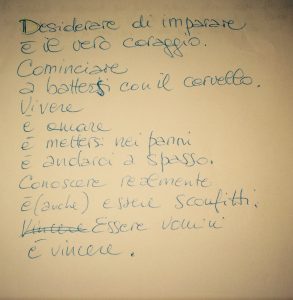 Desiderare di imparare
è il vero coraggio.
Cominciare
a battersi con il cervello.
Vivere
e amare
è mettersi nei panni
e andarci a spasso.
Conoscere realmente
è (anche) essere sconfitti.
Vincere Essere uomini
è vincere.